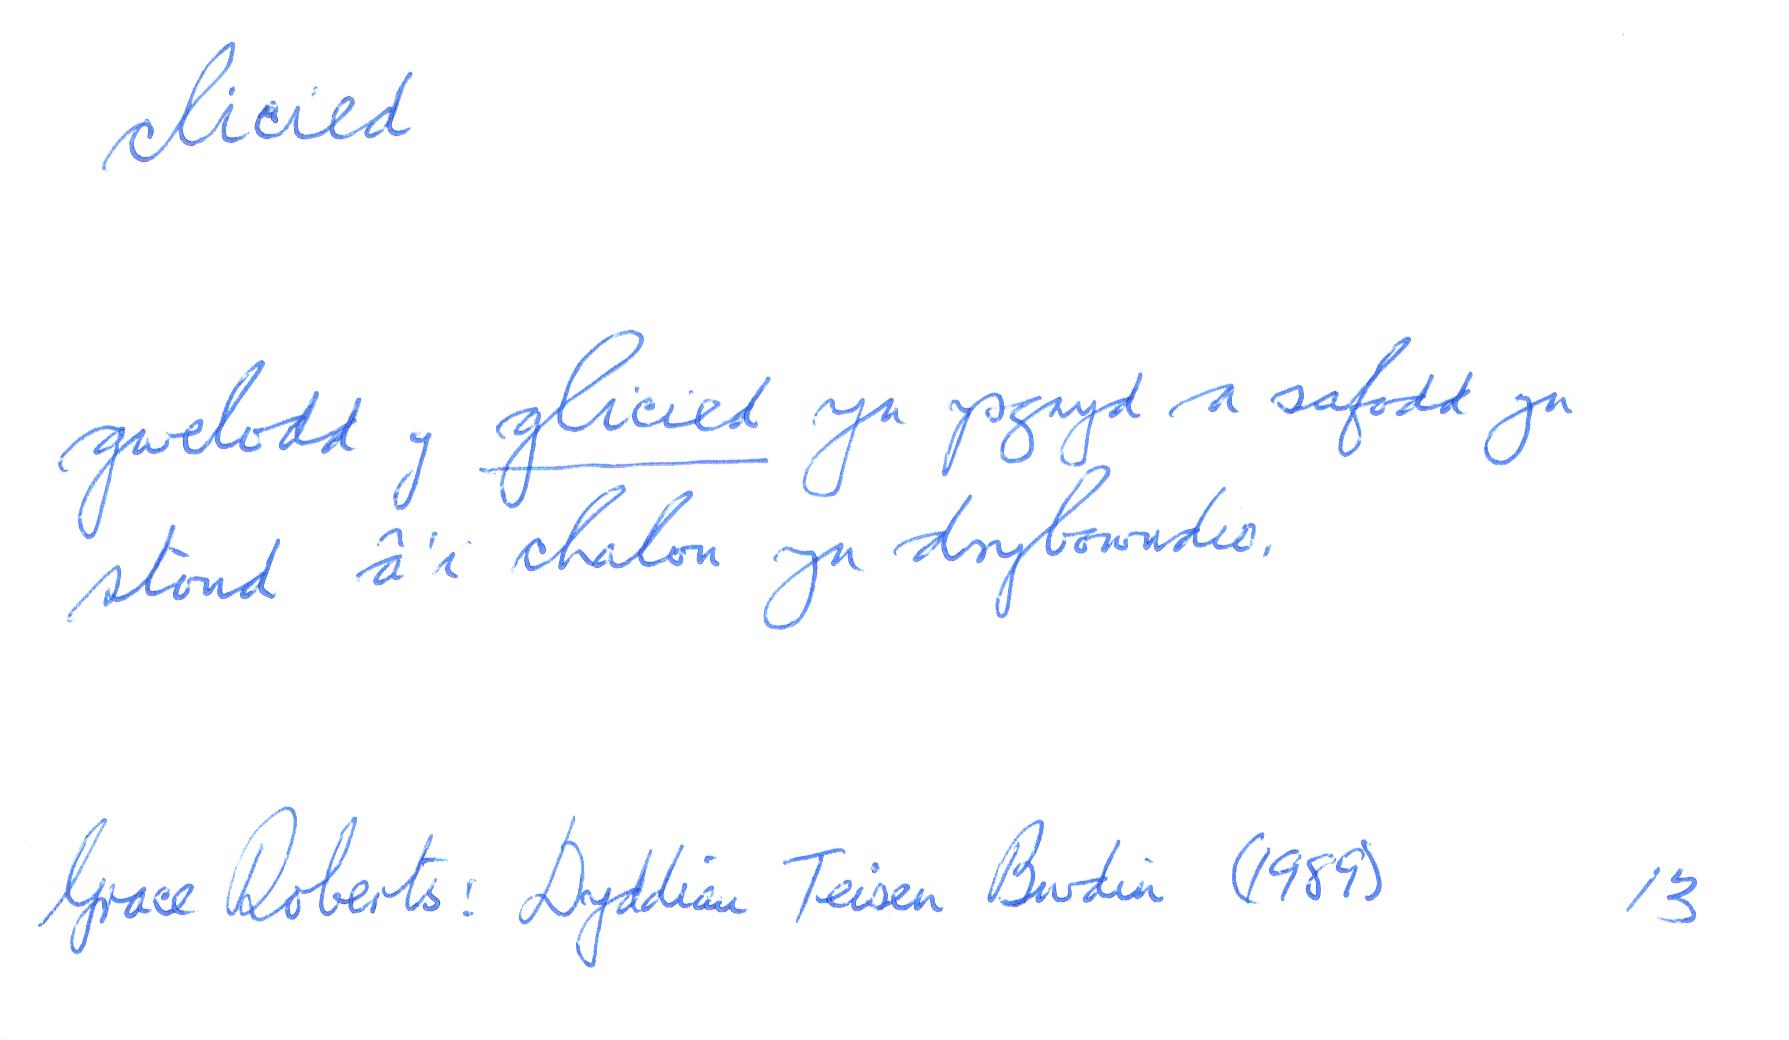 clicied
gwelodd y glicied yn ysgwyd a safodd yn
stond â'i chalon yn drybowndio.
Grace Roberts: Dyddiau Teisen Bwdin (1989) 13